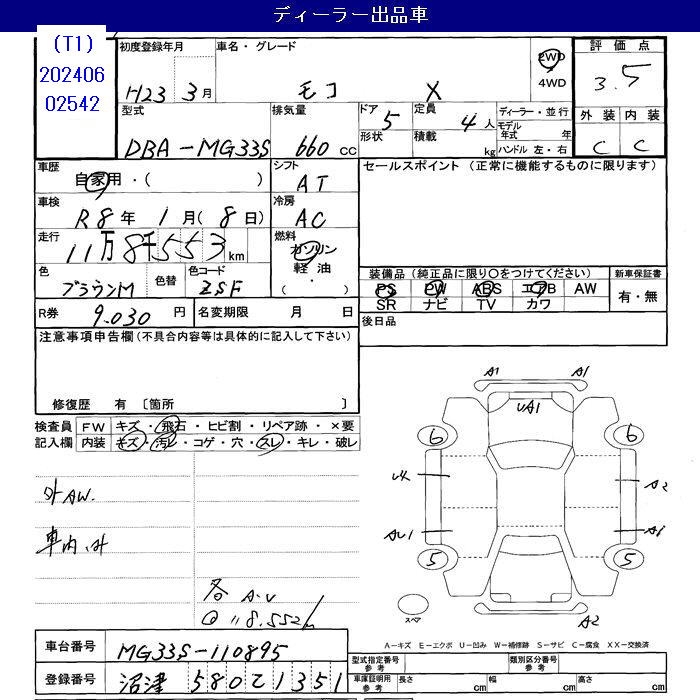 ディーラー出品車
(T1)
202406
02542
初度登録年月
H23 3月
車名・グレード
モコ X
2WD
4WD
評価点
3.5
型式
DBA-MG33S
排気量
660 cc
ドア 5
形状
定員 4人
積載 kg
ディーラー・並行
モデル年式 年
ハンドル 左・右
外装 内装
C C
車歴
自家用・( )
シフト
AT
セールスポイント (正常に機能するものに限ります)
車検
R8年 1月(8日)
冷房
AC
走行
11万8千553km
燃料
ガソリン
軽油
・( )
色
ブラウンM
色替
色コード
ZSF
装備品 (純正品に限り○をつけてください)
PS PW ABS エアB AW
SR ナビ TV カワ
新車保証書
有・無
R券 9.030 円
名変期限 月 日
後日品
注意事項申告欄(不具合内容等は具体的に記入して下さい)
修復歴 有 〔箇所 〕
検査員
記入欄
FW キズ・飛石・ヒビ割・リペア跡・×要
内装 キズ・汚レ・コゲ・穴・スレ・キレ・破レ
外AW.
車内.外
各 A.U
118.552k
A1 A1
UA1
6 6
A2
AU1
5 5
A2
スペア
A-キズ E-エクボ U-凹み W-補修跡 S-サビ C-腐食 XX-交換済
車台番号 MG33S-110895
登録番号 沼津 580 1351
型式指定番号
参考
類別区分番号
参考
車庫証明用
参考
長さ cm
幅 cm
高さ cm